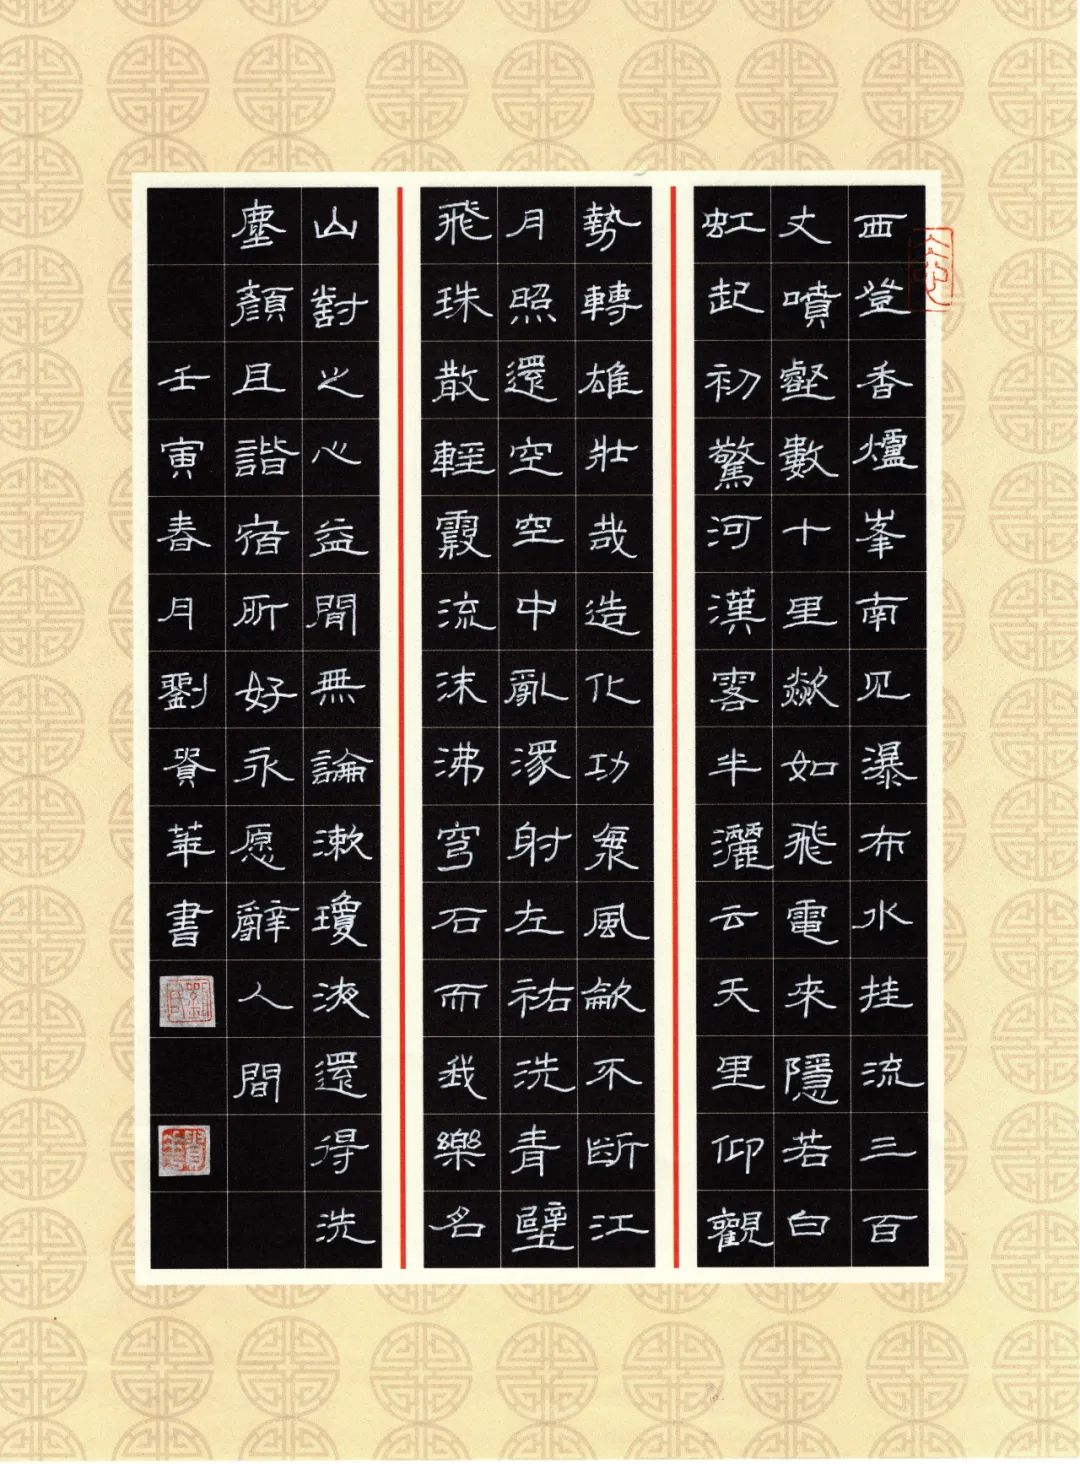 西登香爐峯南见瀑布水挂流三百
丈噴壑數十里欻如飛電來隱若白
虹起初驚河漢客半灑云天里仰觀
勢轉雄壯哉造化功海風龡不断江
月照還空空中亂潈射左祐洗青壁
飛珠散輕霞流沫沸穹石而我樂名
山對之心益間無論漱瓊液還得洗
塵顏且諧宿所好永愿辭人間
壬寅春月劉賢華書
劉氏